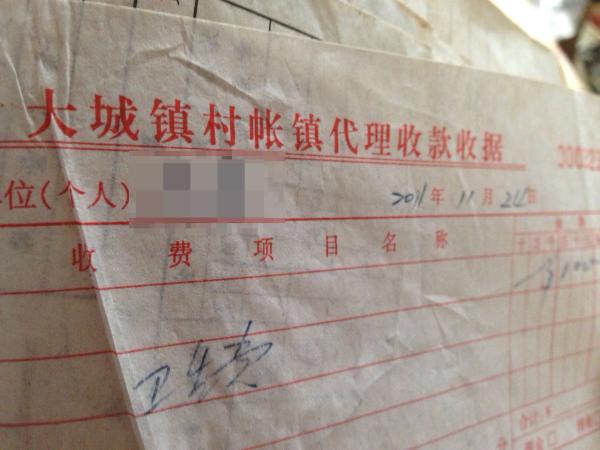 大城镇村帐镇代理收款收据
位(个人)
2011年11月24日
收费项目名称
卫生费
合计:￥